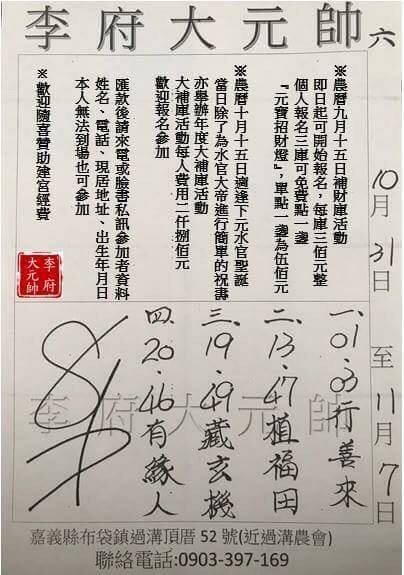 李府大元帥 六
10月31日至11月7日
※農曆九月十五日補財庫活動
即日起可開始報名，每庫三佰元整
個人報名三庫可免費點一盞
『元寶招財燈』，單點一盞為伍佰元
※農曆十月十五日適逢下元水官聖誕
當日除了為水官大帝進行簡單的祝壽
亦舉辦年度大補庫活動
大補庫活動每人費用二仟捌佰元
歡迎報名參加
匯款後請來電或臉書私訊參加者資料
姓名、電話、現居地址、出生年月日
本人無法到場也可參加
※歡迎隨喜贊助建宮經費
李府
大元帥
一、01.03行善來
二、13.47植福田
三、19.49藏玄機
四、20.46有緣人
李府大元帥
嘉義縣布袋鎮過溝頂厝52號(近過溝農會)
聯絡電話:0903-397-169